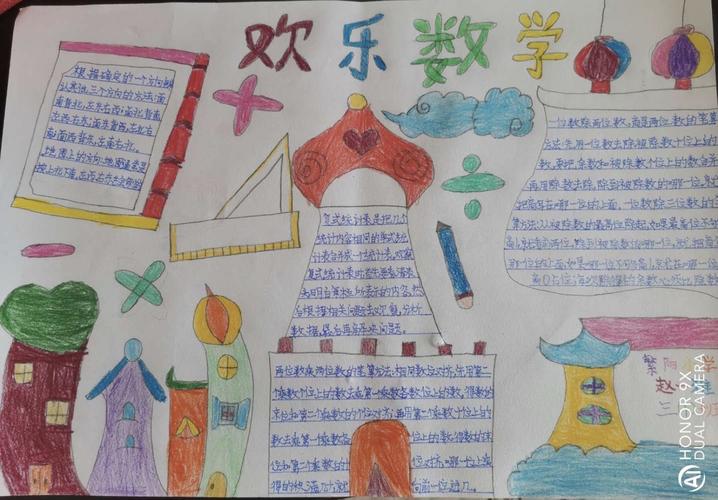 欢乐数学
根据确定的一个方向
认其他三个方向的方法:面
南背北,左东右西;面北背南,
左西右东;面东背西,左北右
南;面西背东,左南右北。
地图上的方向:地图通常是
按上北下南,左西右东
复式统计表是把几个
统计内容相同的单式统
计表合并成一个统计表。
复式统计表时首先要看清表
头,明白
后根据相关问题去
数据,最后再解决问题。
两位数乘两位数的笔算方法:相同数位对齐,先用第二
个乘数个位上的数去乘第一个乘数各数位上的数,得数的
末位和第二个乘数的个位对齐;再用第二个乘数十位上的
数去乘第一个乘数各数位上的数,得数的末
位和第二个乘数的十位对齐,哪一位上乘
得的积满几十就向前一位进几。
一位数除两位数,商是两位数的笔算
方法:先用一位数去除被除数十位上的
数,要把余数和被除数个位上的数合并
再用除数去除,除到被除数的哪一位,
把商写在哪一位的上面。一位数除三位数的
算方法:从被除数的最高位除起,如果最高位不够
商1,就看前两位,除到被除数的哪一位,就把商
那一位的上面,如果哪一位不够商1,就在哪一位
商0占位,每次除得的余数必须比除数
繁阳
赵
三
HONOR 9X
AI DUAL CAMERA